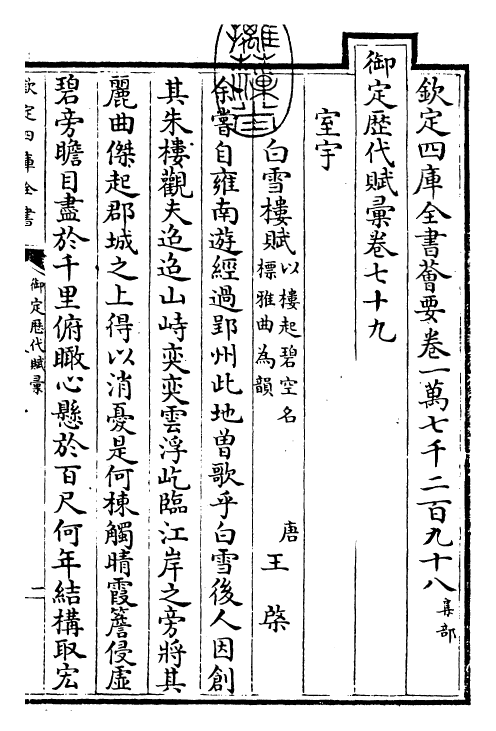 欽定四庫全書薈要卷一萬七千二百九十八集部
御定歷代賦彙卷七十九
室宇
白雪樓賦以樓起碧空名標雅曲為韻 唐王棨
余嘗自雍南遊經過郢州此地曽歌乎白雪後人因創
其朱樓觀夫迢迢山峙奕奕雲浮屹臨江岸之旁將其
麗曲傑起郡城之上得以消憂是何棟觸晴霞簷侵虚
碧旁瞻目盡於千里俯瞰心懸於百尺何年結構取宏
欽定四庫全書
御定歷代賦彙
二